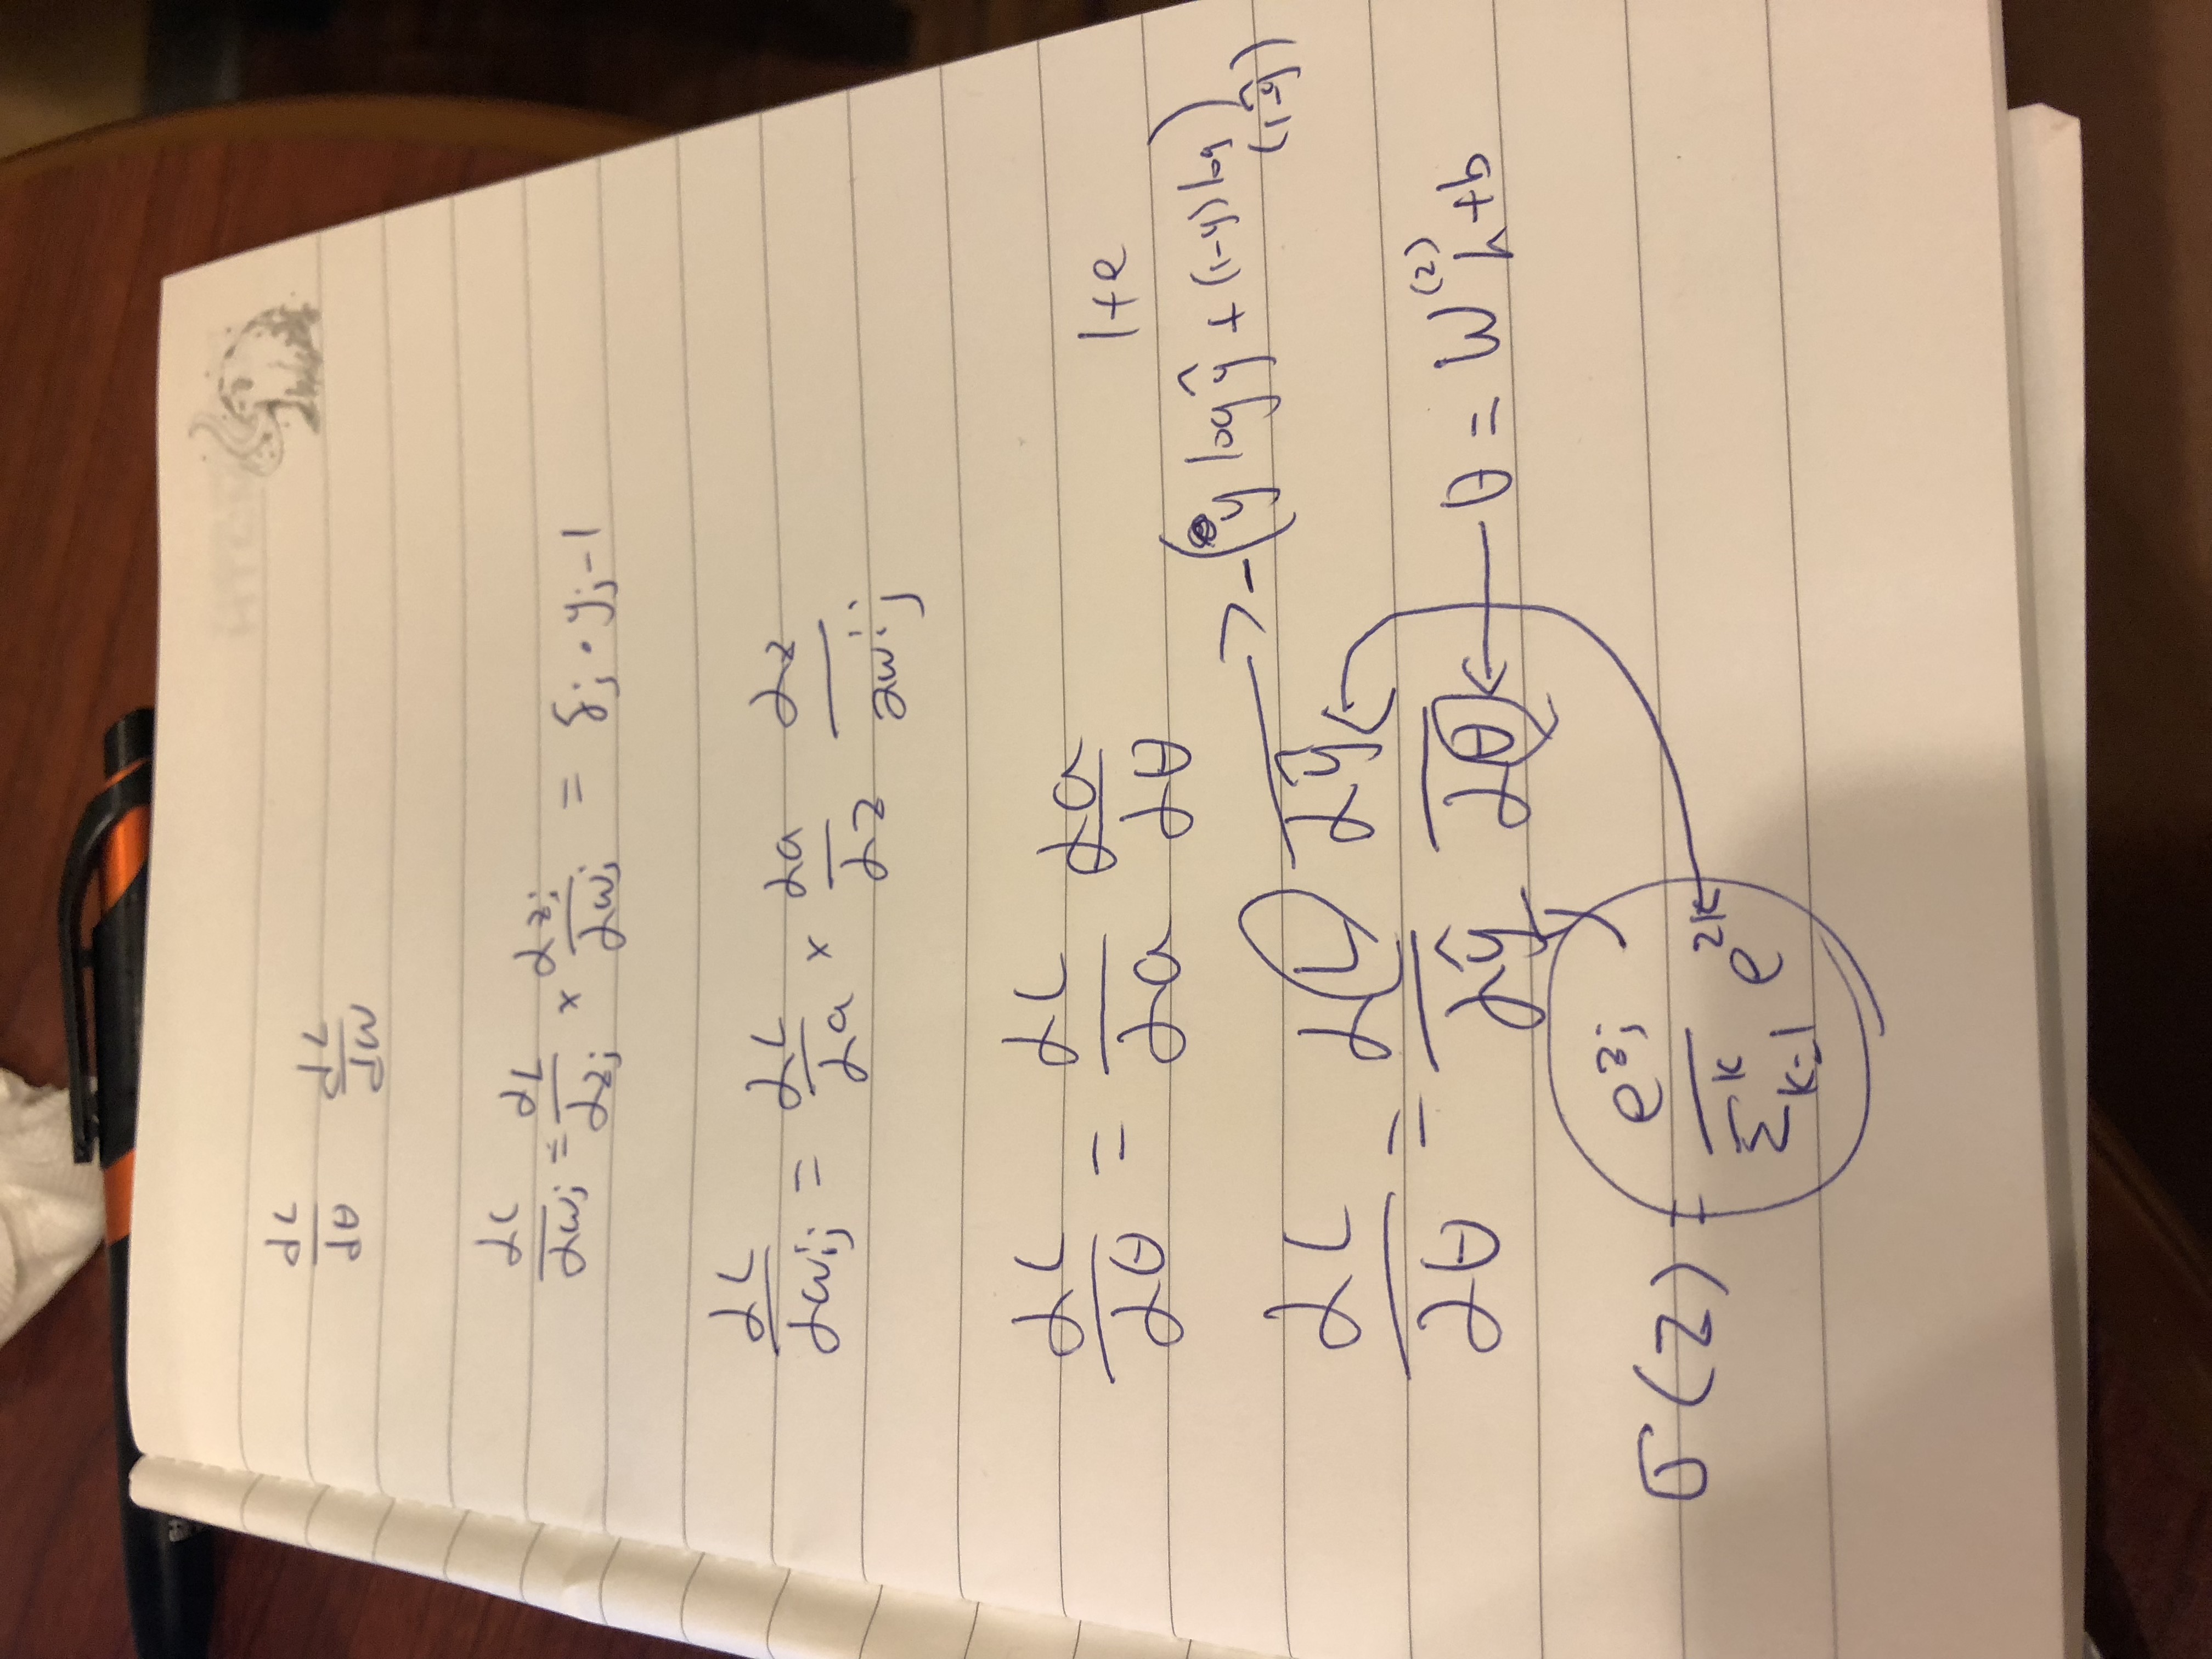 dL/dθ dL/dW
∂L/∂wj = ∂L/∂zj × ∂zj/∂wj = δj · yj-1
∂L/∂wij = ∂L/∂a × ∂a/∂z ∂z/∂wij
∂L/∂θ = ∂L/∂a ∂a/∂θ
1+e
-(y log ŷ + (1-y) log (1-ŷ))
∂L/∂θ = ∂L/∂ŷ ∂ŷ/∂θ
θ = W^(2) h + b
σ(z) = e^zj / Σ^K k=1 e^zk